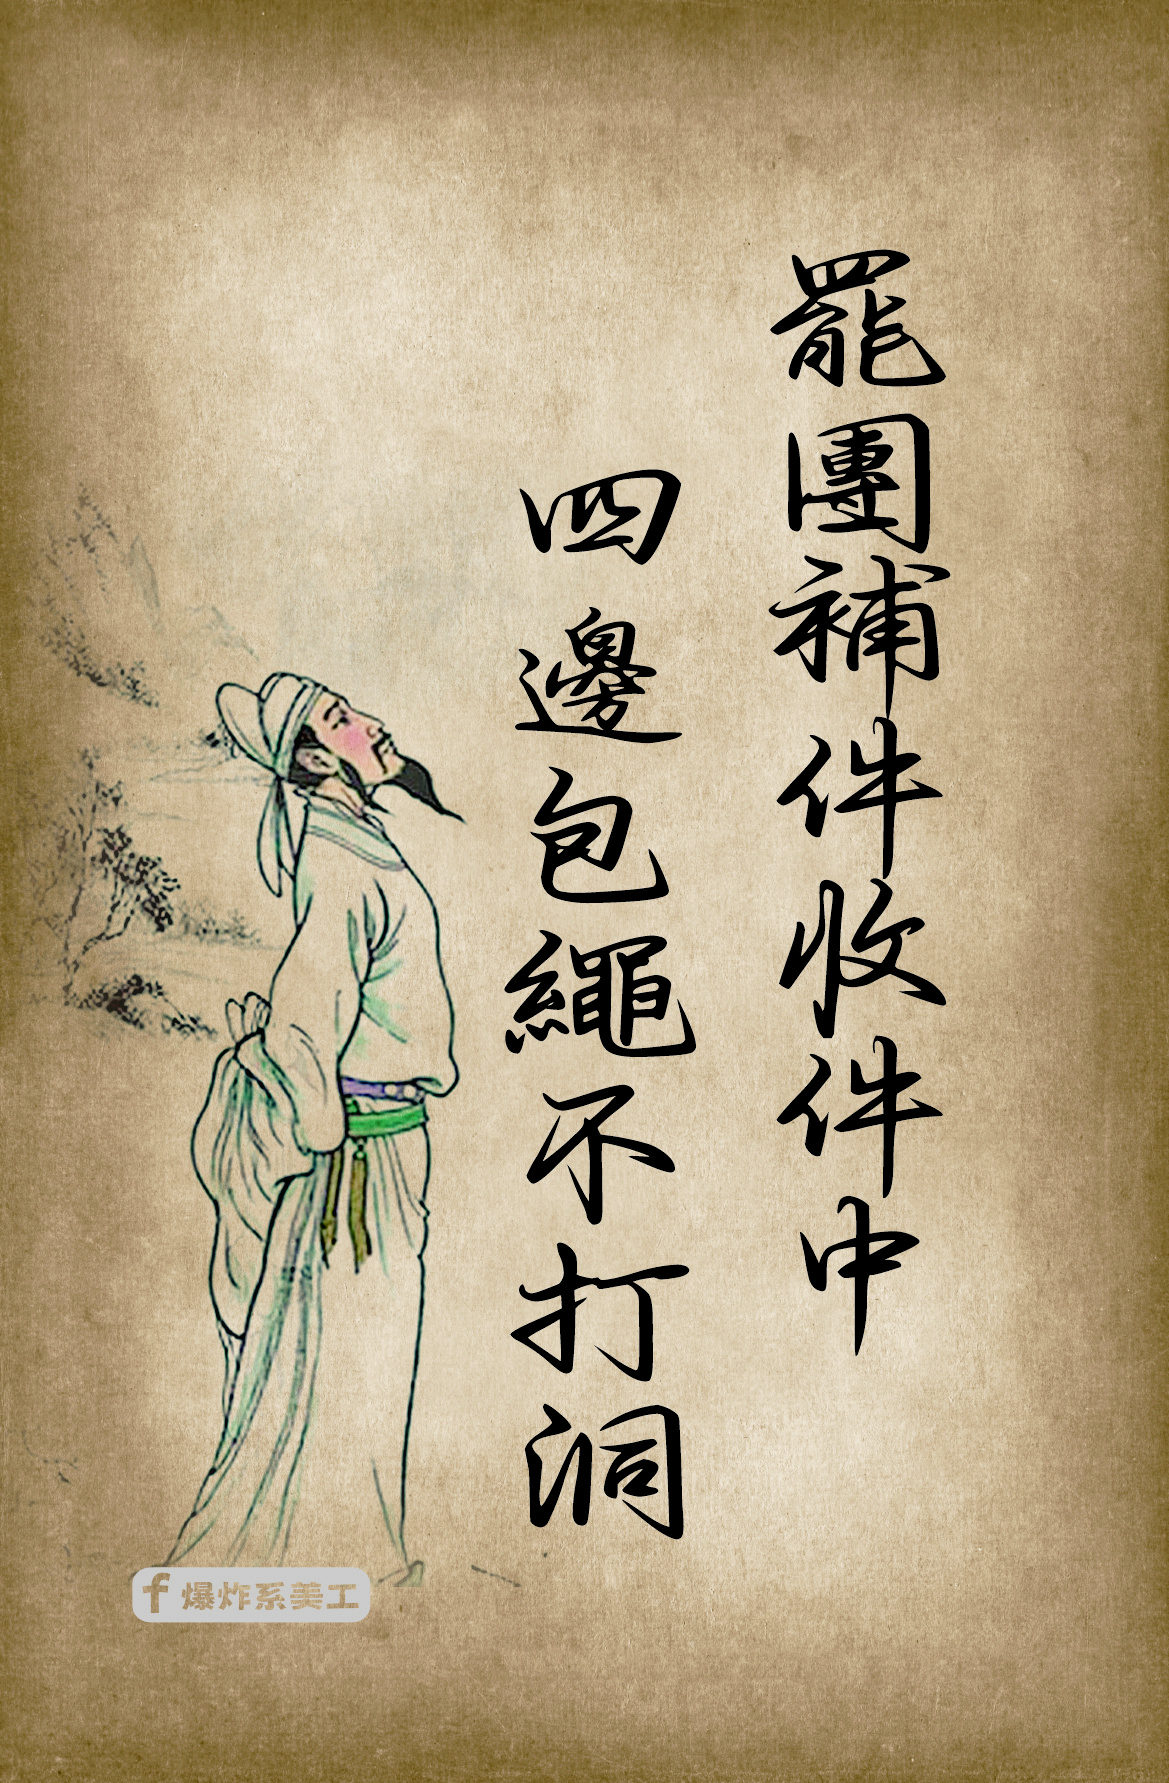 罷團補件收件中
四邊包繩不打洞
f 爆炸系美工